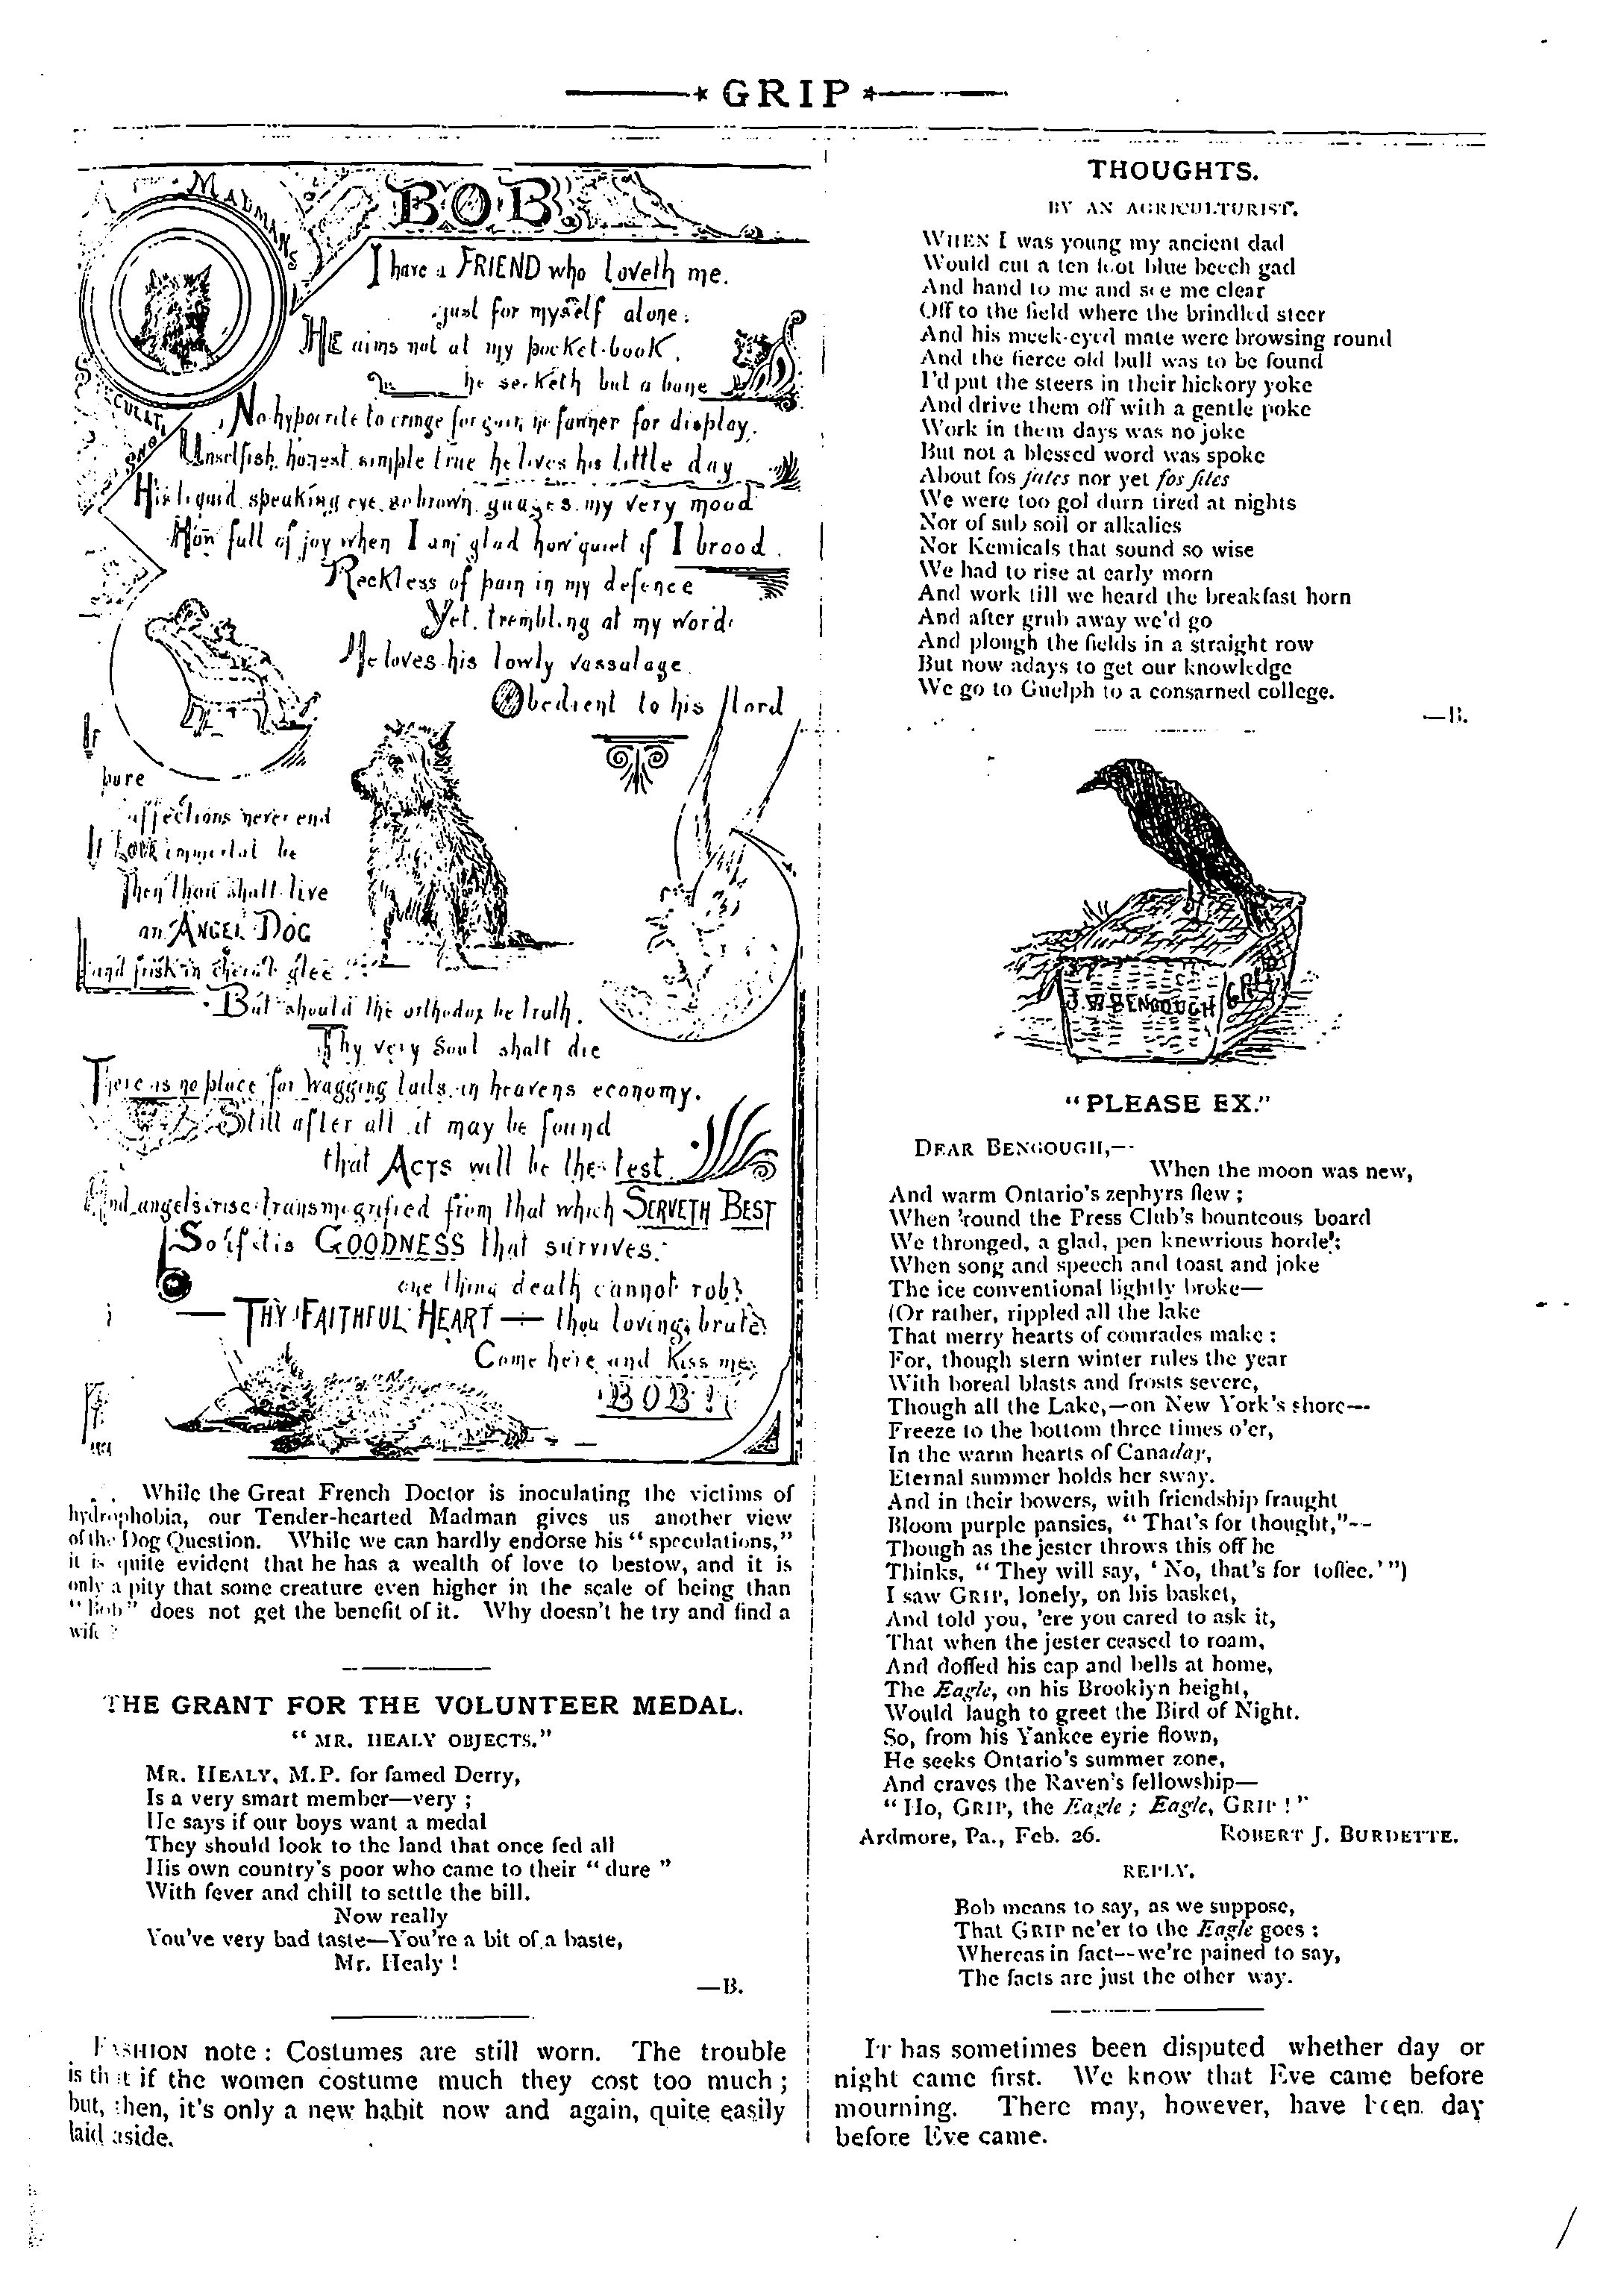 GRIP
A MADMAN'S
SPECULATIONS
BOB.
I have a FRIEND who loveth me.
just for myself alone:
HE aims not at my pocket-book.
he seeketh but a bone
No hypocrite to cringe for gain no fawner for display.
Unselfish, honest, simple true he lives his little day
His liquid, speaking eye, so brown, guages my very mood
How full of joy when I am glad how quiet if I brood.
Reckless of pain in my defence
Yet, trembling at my word:
He loves his lowly vassalage
Obedient to his lord
If
pure
affections never end
If LOVE immortal be
Then thou shalt live
an ANGEL DOG
and frisk in glee
But should the orthodox be truth,
Thy very soul shalt die
There is no place for wagging tails in heavens economy.
Still after all it may be found
that ACTS will be the test
And angels rise transmogrified from that which SERVETH BEST
So if it is GOODNESS that survives.
one thing death cannot rob?
— THY FAITHFUL HEART — thou loving brute?
Come here and kiss me,
BOB!
While the Great French Doctor is inoculating the victims of
hydrophobia, our Tender-hearted Madman gives us another view
of the Dog Question. While we can hardly endorse his "speculations,"
it is quite evident that he has a wealth of love to bestow, and it is
only a pity that some creature even higher in the scale of being than
"Bob" does not get the benefit of it. Why doesn't he try and find a
wife?
THE GRANT FOR THE VOLUNTEER MEDAL.
"MR. HEALY OBJECTS."
MR. HEALY, M.P. for famed Derry,
Is a very smart member—very;
He says if our boys want a medal
They should look to the land that once fed all
His own country's poor who came to their "dure"
With fever and chill to settle the bill.
Now really
You've very bad taste—You're a bit of a baste,
Mr. Healy!
—B.
FASHION note: Costumes are still worn. The trouble
is that if the women costume much they cost too much;
but, then, it's only a new habit now and again, quite easily
laid aside.
THOUGHTS.
BY AN AGRICULTURIST.
WHEN I was young my ancient dad
Would cut a ten foot blue beech gad
And hand to me and see me clear
Off to the field where the brindled steer
And his meek-eyed mate were browsing round
And the fierce old bull was to be found
I'd put the steers in their hickory yoke
And drive them off with a gentle poke
Work in them days was no joke
But not a blessed word was spoke
About fos fates nor yet fos files
We were too gol durn tired at nights
Nor of sub soil or alkalies
Nor Kemicals that sound so wise
We had to rise at early morn
And work till we heard the breakfast horn
And after grub away we'd go
And plough the fields in a straight row
But now adays to get our knowledge
We go to Guelph to a consarned college.
—B.
J. W. BENGOUGH
GRIP
"PLEASE EX."
DEAR BENGOUGH,—
When the moon was new,
And warm Ontario's zephyrs flew;
When 'round the Press Club's bounteous board
We thronged, a glad, pen knewrious horde;
When song and speech and toast and joke
The ice conventional lightly broke—
(Or rather, rippled all the lake
That merry hearts of comrades make:
For, though stern winter rules the year
With boreal blasts and frosts severe,
Though all the Lake,—on New York's shore—
Freeze to the bottom three times o'er,
In the warm hearts of Canaday,
Eternal summer holds her sway.
And in their bowers, with friendship fraught
Bloom purple pansies, "That's for thought,"—
Though as the jester throws this off he
Thinks, "They will say, 'No, that's for toffee.'")
I saw GRIP, lonely, on his basket,
And told you, 'ere you cared to ask it,
That when the jester ceased to roam,
And doffed his cap and bells at home,
The Eagle, on his Brooklyn height,
Would laugh to greet the Bird of Night.
So, from his Yankee eyrie flown,
He seeks Ontario's summer zone,
And craves the Raven's fellowship—
"Ho, GRIP, the Eagle; Eagle, GRIP!"
Ardmore, Pa., Feb. 26. ROBERT J. BURDETTE.
REPLY.
Bob means to say, as we suppose,
That GRIP ne'er to the Eagle goes:
Whereas in fact—we're pained to say,
The facts are just the other way.
IT has sometimes been disputed whether day or
night came first. We know that Eve came before
mourning. There may, however, have been day
before Eve came.